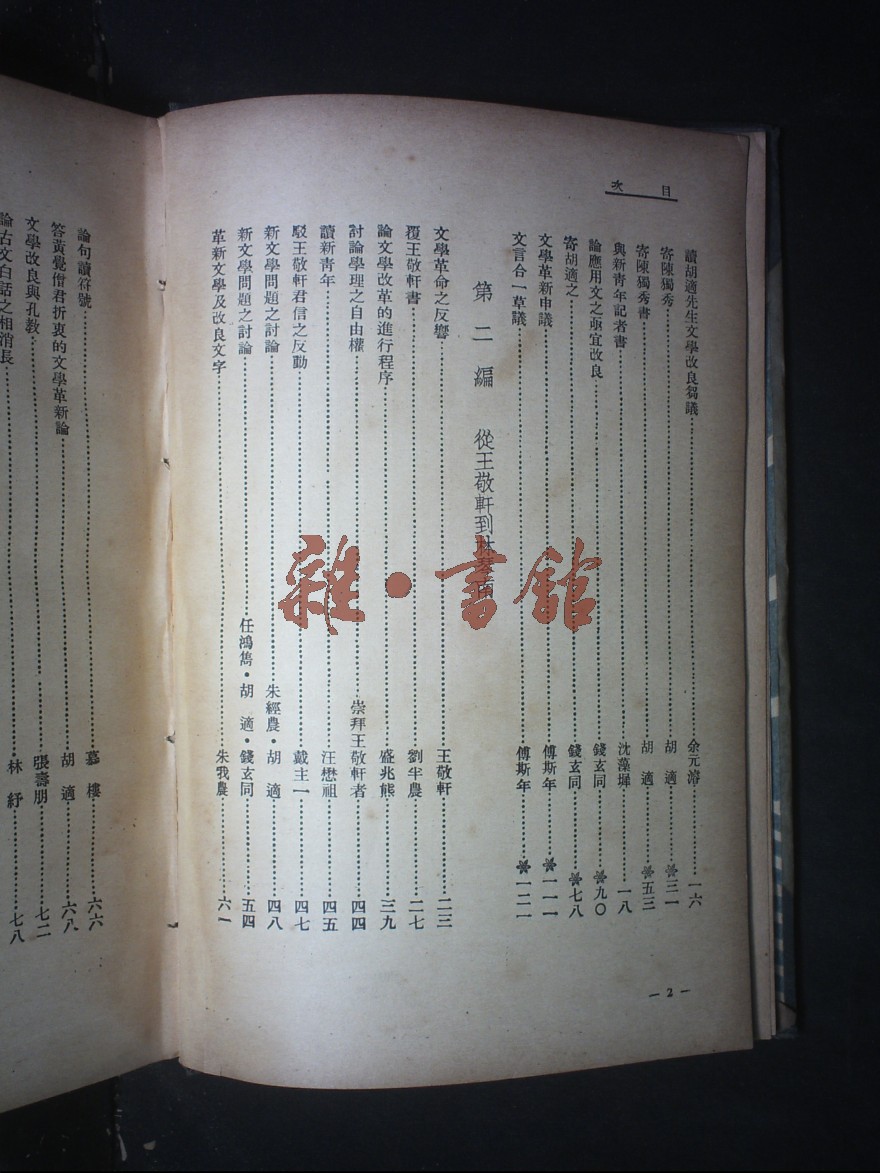 目次
讀胡適先生文學改良芻議……余元濬……一六
寄陳獨秀……胡適……※三一
寄陳獨秀書……胡適……※五三
與新青年記者書……沈藻墀……一八
論應用文之亟宜改良……錢玄同……※九〇
寄胡適之……錢玄同……※七八
文學革新申議……傅斯年……※一一一
文言合一草議……傅斯年……※一二一
第二編 從王敬軒到林琴南
文學革命之反響……王敬軒……二三
覆王敬軒書……劉半農……二七
論文學改革的進行程序……盛兆熊……三九
討論學理之自由權……崇拜王敬軒者……四四
讀新青年……汪懋祖……四五
駁王敬軒君信之反動……戴主一……四七
新文學問題之討論……朱經農·胡適……四八
新文學問題之討論……任鴻雋·胡適·錢玄同……五四
革新文學及改良文字……朱我農……六一
—2—
論句讀符號……慕樓……六六
答黃覺僧君折衷的文學革新論……胡適……六八
文學改良與孔教……張壽朋……七二
論古文白話之相消長……林紓……七八
雜·書館